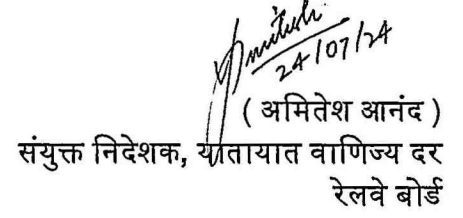 Amitesh
24/07/24
( अमितेश आनंद )
संयुक्त निदेशक, यातायात वाणिज्य दर
रेलवे बोर्ड